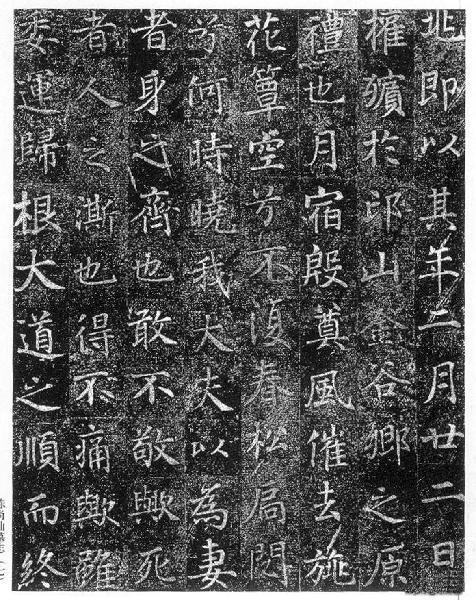 兆即以其年二月廿二日
權殯於邙山金谷鄉之原
禮也月宿殷奠風催去旐
花簟空兮不復春松扃閟
兮何時曉我大夫以為妻
者身之齊也敢不敬歟死
者人之澌也得不痛歟雖
委運歸根大道之順而終